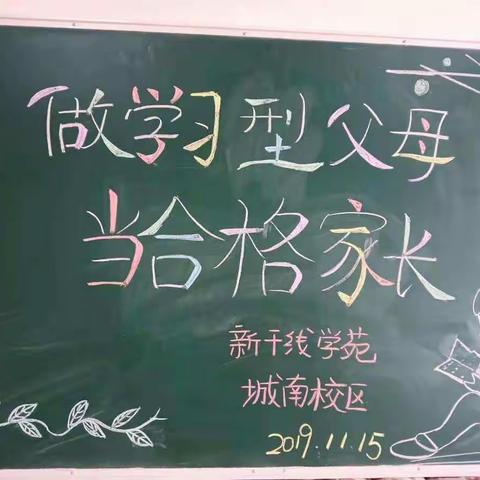 做学习型父母
当合格家长
新干线学苑
城南校区
2019.11.15